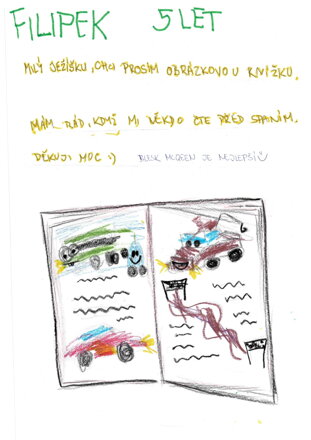 FILIPEK 5 LET
MILÝ JEŽÍŠKU, CHCI PROSÍM OBRÁZKOVOU KNÍŽKU.
MÁM RÁD, KDYŽ MI NĚKDO ČTE PŘED SPANÍM.
DĚKUJI MOC :) BLESK MCQEEN JE NEJLEPŠÍ